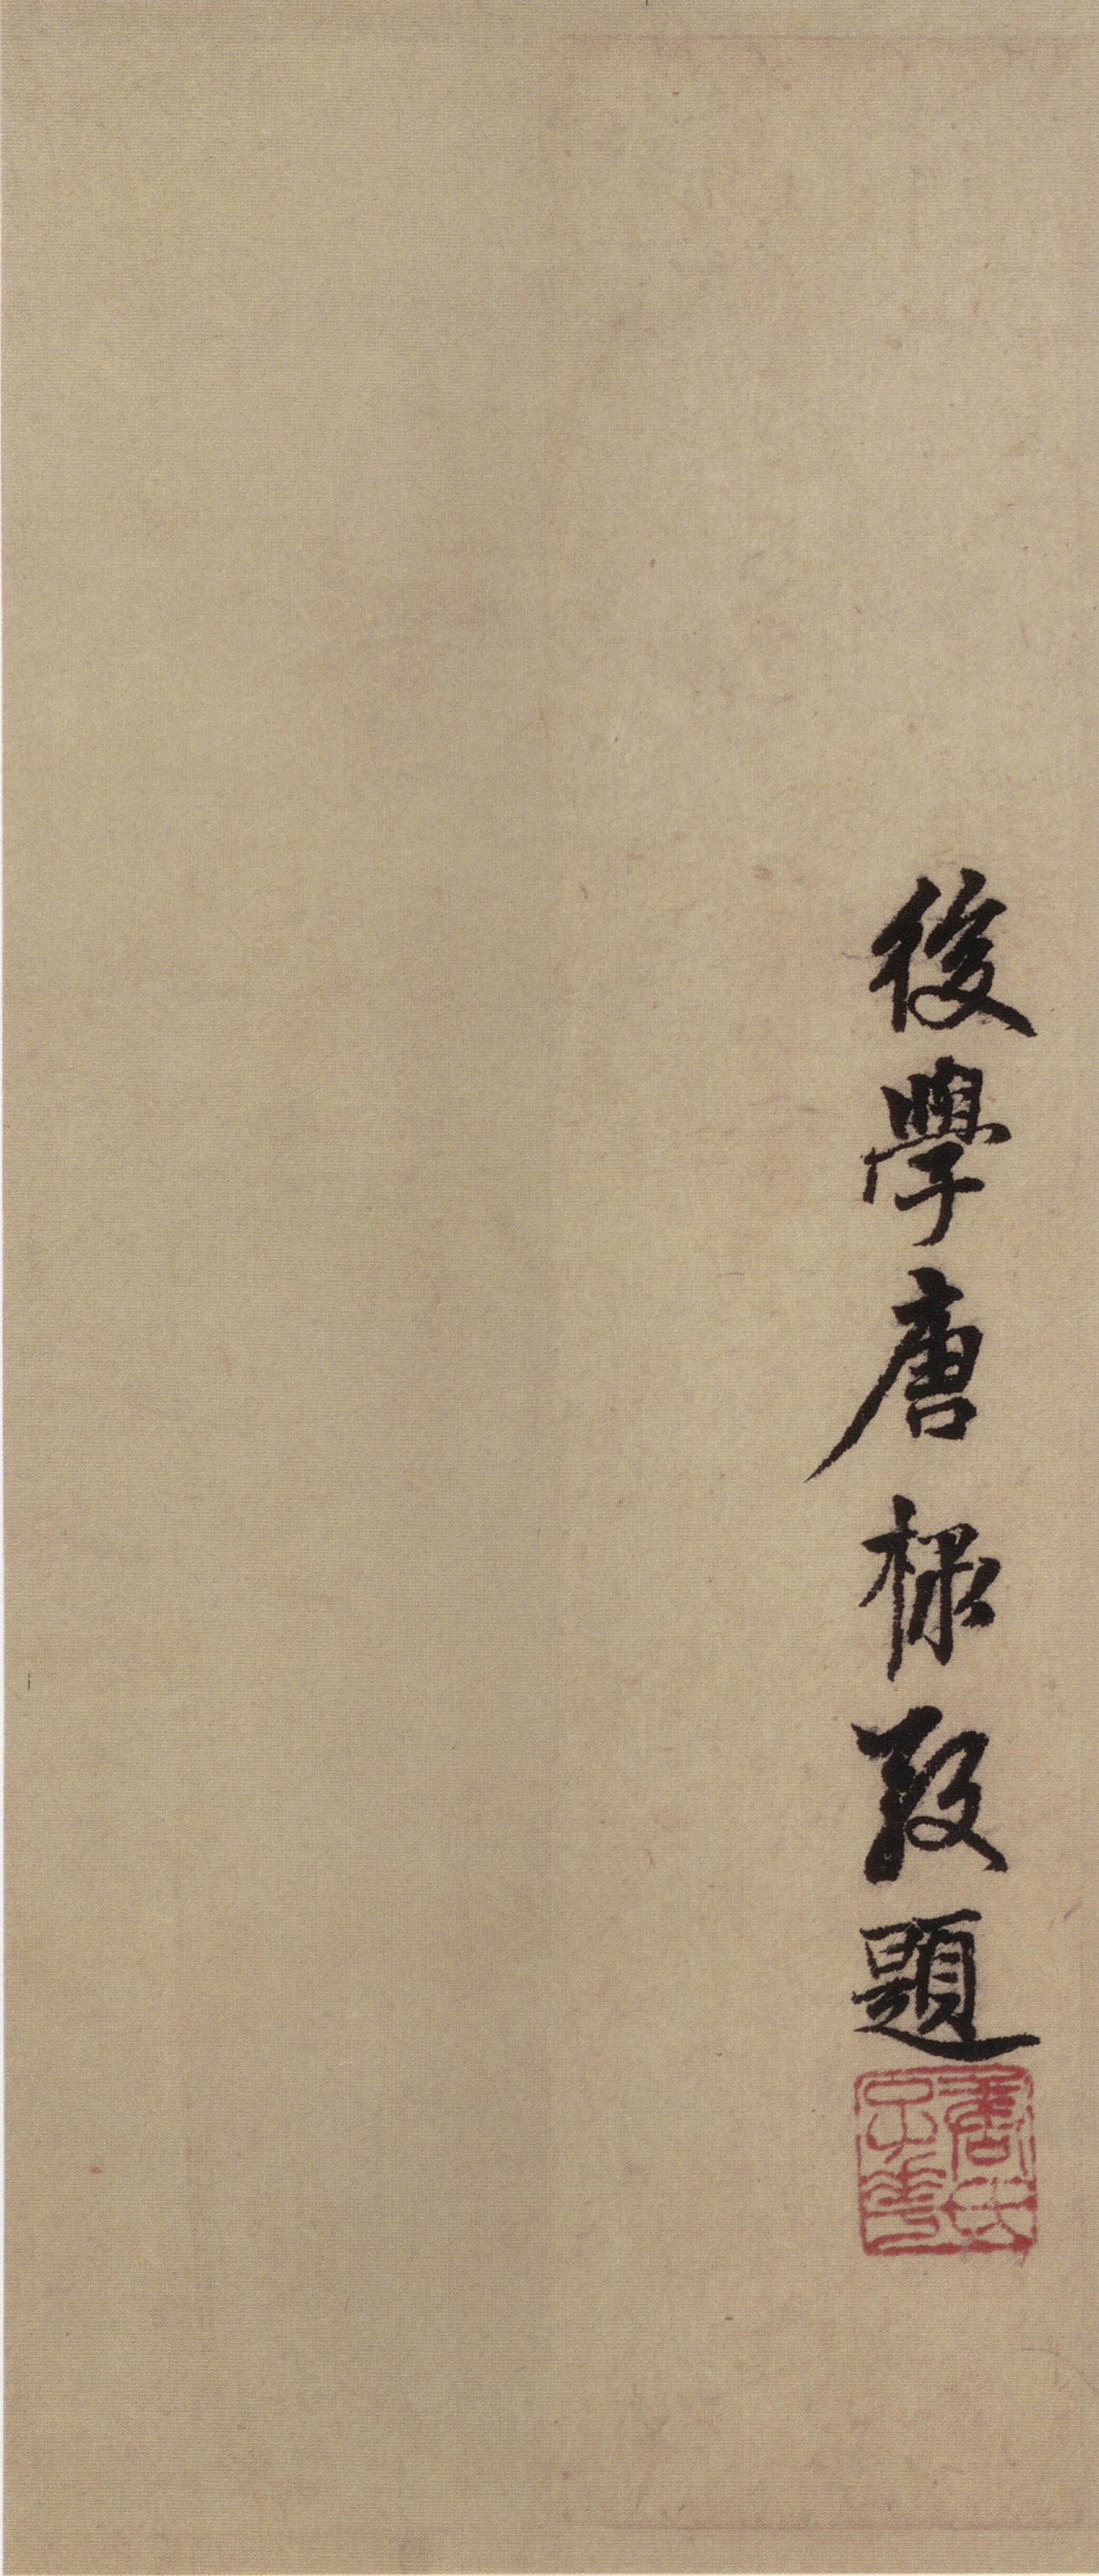 後學唐棣敬題
唐氏子華